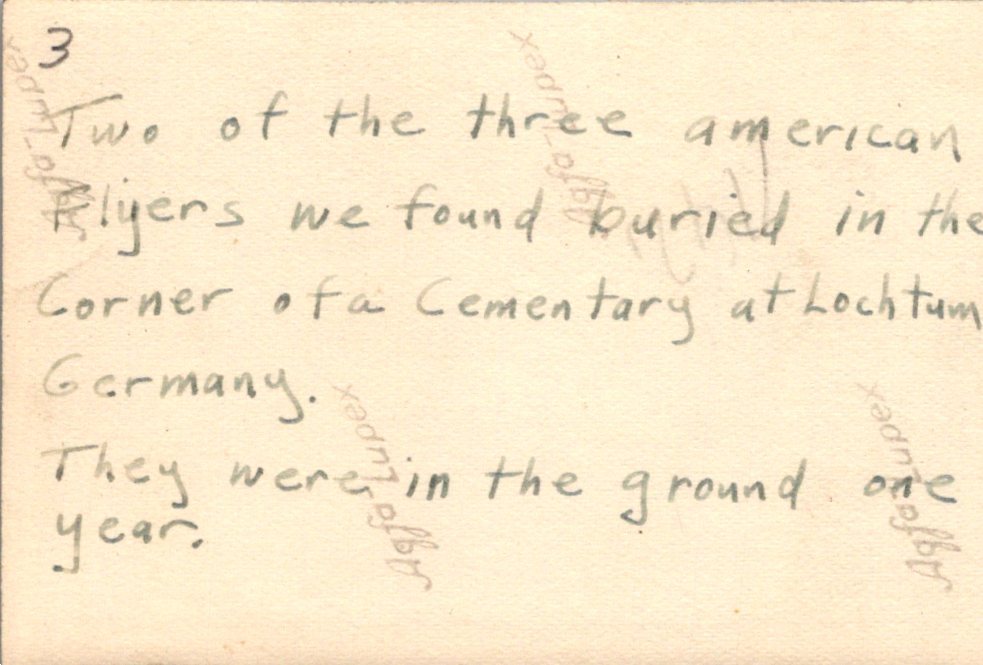 3
Two of the three american
Flyers we found buried in the
Corner of a Cementary at Lochtum
Germany.
They were in the ground one
year.
Agfa Lupex
Agfa Lupex
Agfa Lupex
Agfa Lupex